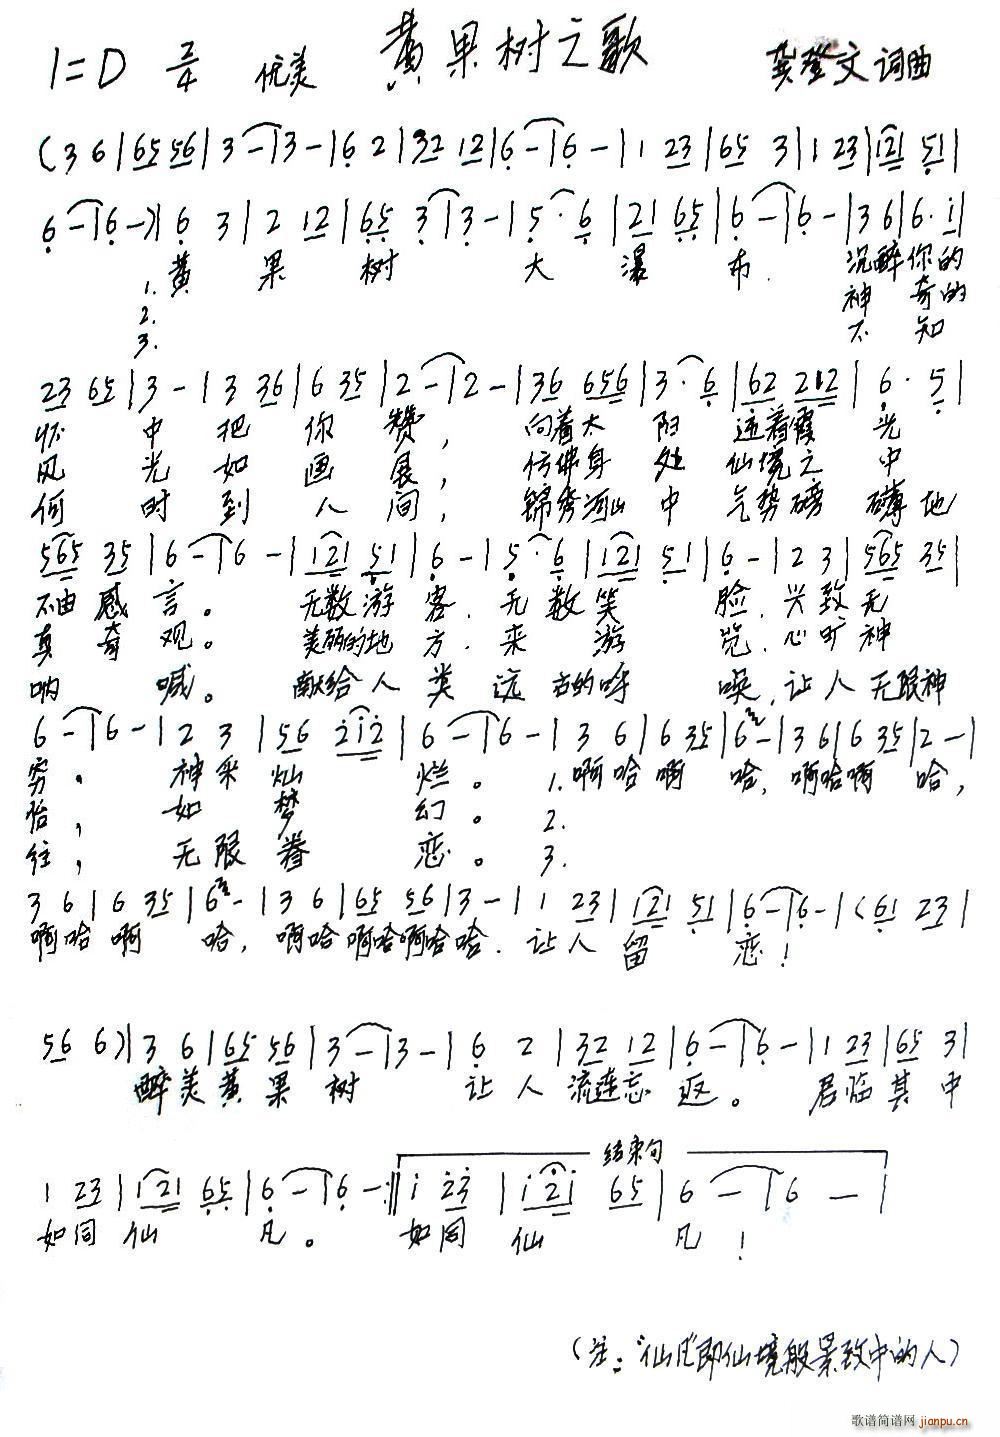 1=D 2/4 优美 黄果树之歌 龚登文 词曲
(3 6|65 56|3 -|3 -|6 2|32 12|6 -|6 -|1 23|65 3|1 23|121 51|
6 -|6 -)|6 3|2 12|65 3|3 -|5 · 6|21 65|6 -|6 -|3 6|6 · i|
1. 黄果树大瀑布. 沉醉你的
2. 神奇的
3. 不知
23 65|3 -|3 36|6 35|2 -|2 -|36 656|3 · 6|62 212|6 · 5|
怀中把你赞, 向着太阳迎着霞光
风光如画展, 仿佛身处仙境之中
何时到人间, 锦秀河山中气势磅礴地
565 35|6 -|6 -|121 51|6 -|5 · 6|121 51|6 -|2 3|565 35|
不由感言。 无数游客. 无数笑脸. 兴致无
真奇观。 美丽的地方. 来游览. 心旷神
呐喊。 献给人类远古的呼唤, 让人无限神
6 -|6 -|2 3|56 212|6 -|6 -|3 6|6 35|6 -|3 6|6 35|2 -|
穷。 神采灿烂。 1. 啊哈啊哈, 啊哈啊哈,
怡, 如梦幻。 2.
往, 无限眷恋。 3.
3 6|6 35|6 -|3 6|65 56|3 -|1 23|121 51|6 -|6 -|(61 23|
啊哈啊哈, 啊哈啊哈啊哈哈. 让人留恋!
56 6)|3 6|65 56|3 -|3 -|6 2|32 12|6 -|6 -|1 23|65 3|
醉美黄果树 让人流连忘返。 君临其中
1 23|121 65|6 -|6 -:‖ 结束句 i 23|i2i 65|6 -|6 -|
如同仙凡。 如同仙凡!
(注:"仙凡"即仙境般景致中的人)
歌谱简谱网 jianpu.cn